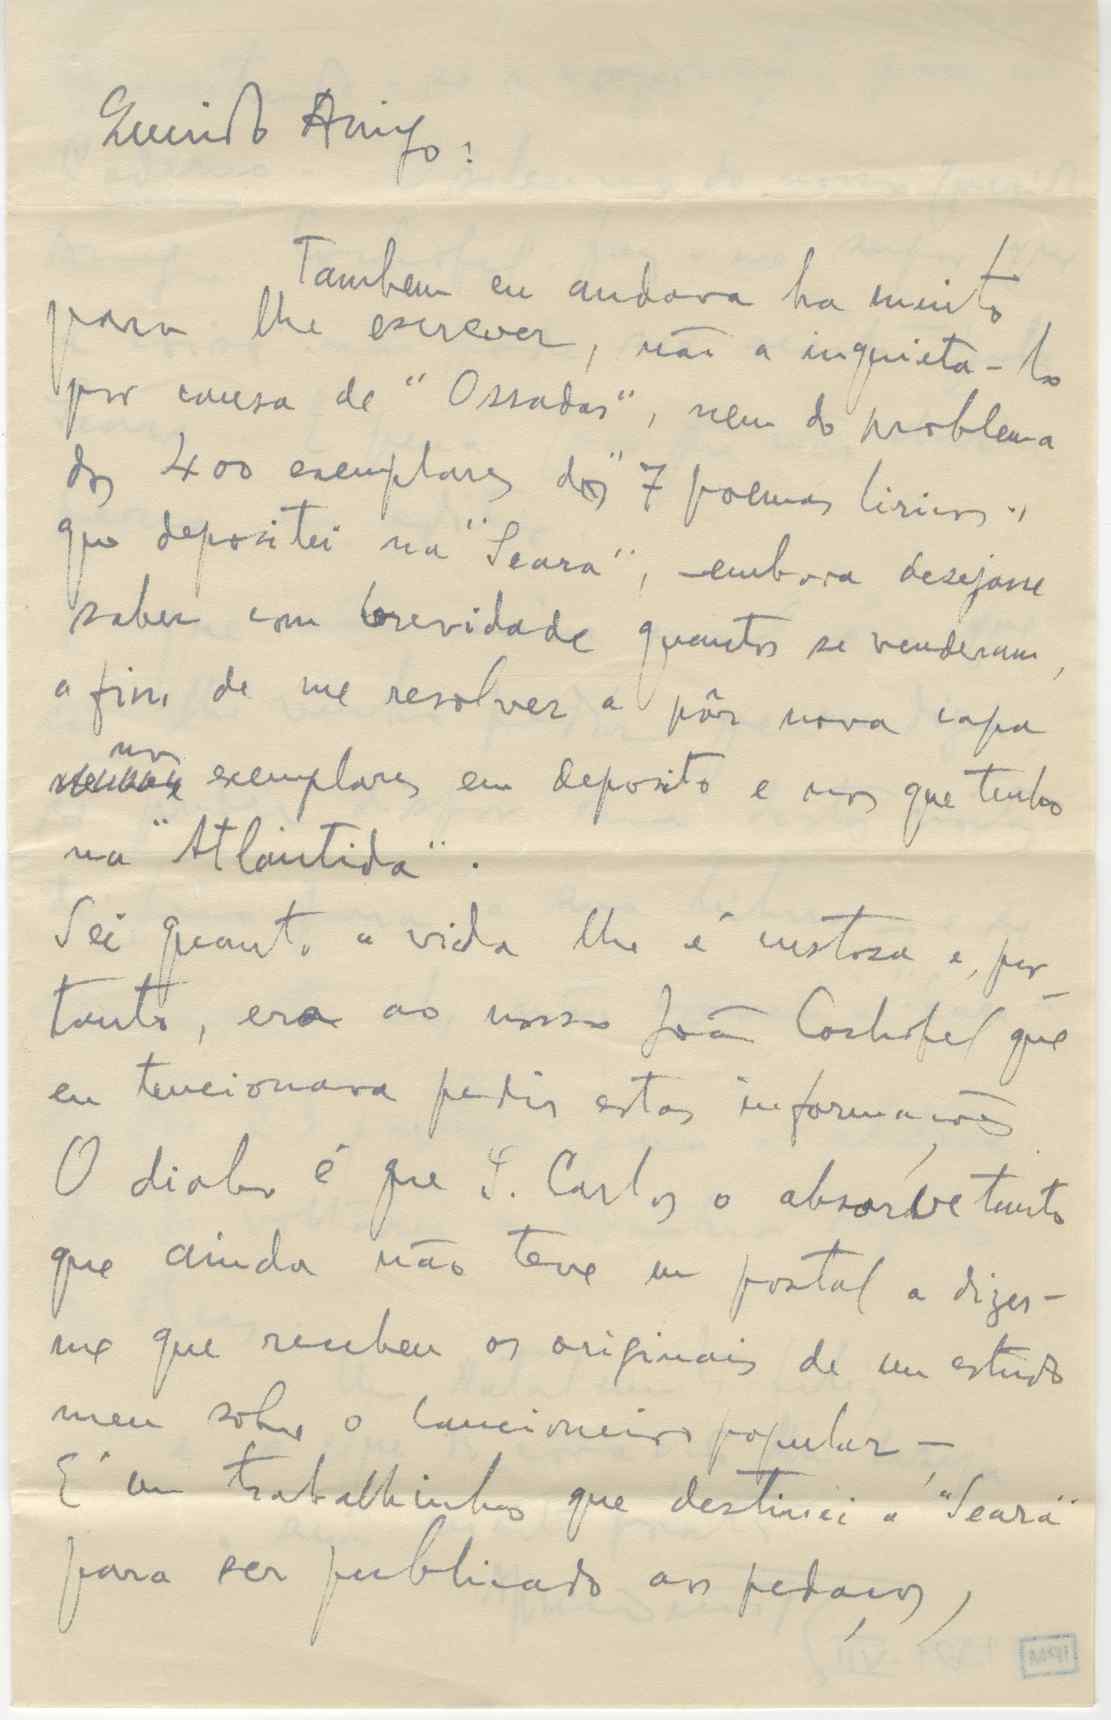 Querido Amigo:
Tambem eu andava ha muito
para lhe escrever, não a inquieta-lo
por causa de "Ossadas", nem do problema
dos 400 exemplares dos "7 poemas liricos",
que depositei na "Seara", embora desejasse
saber com brevidade quantos se venderam,
a fim de me resolver a pôr nova capa
nos
exemplares em deposito e nos que tenho
na "Atlântida".
Sei quanto a vida lhe é custosa e, por-
tanto, era ao nosso João Cochofel que
eu tencionava pedir estas informações
O diabo é que S. Carlos o absorve tanto
que ainda não teve um postal a dizer-
me que recebeu os originais de um estudo
meu sobre o cancioneiro popular —
E' um trabalhinho que destinei á "Seara"
para ser publicado aos pedaços,